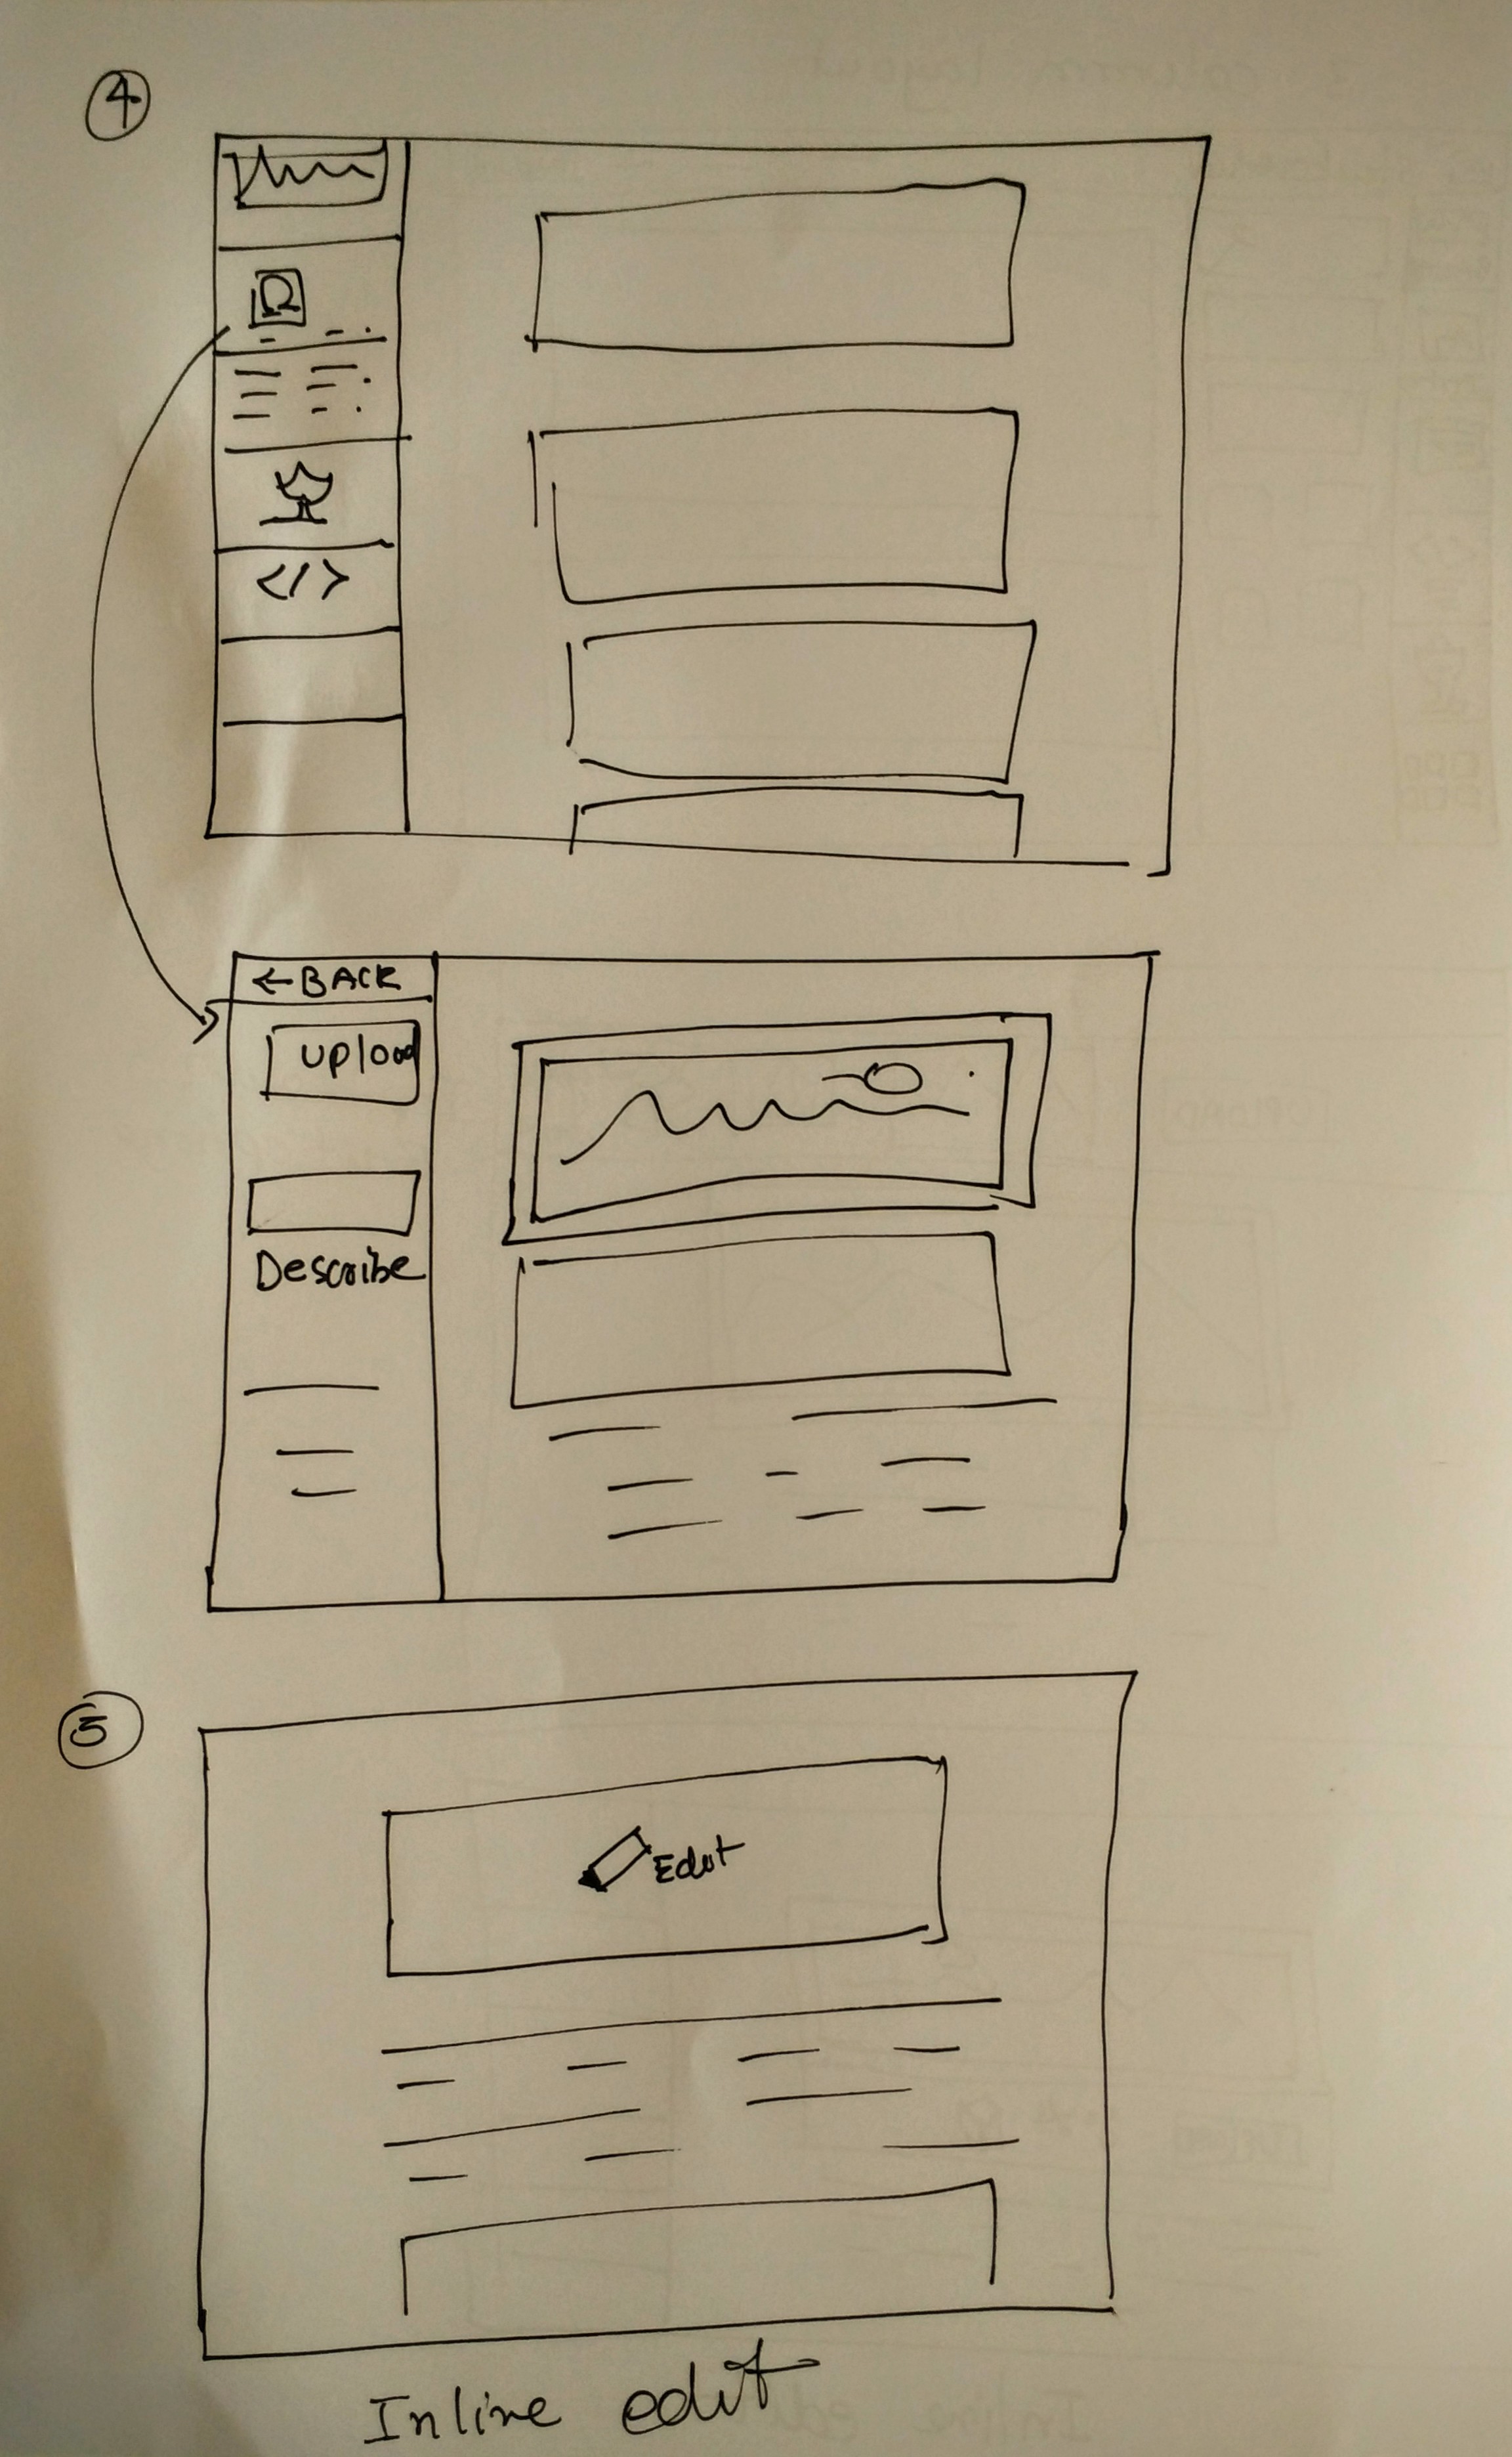 4
</>
← BACK
Upload
Describe
5
Edit
Inline edit